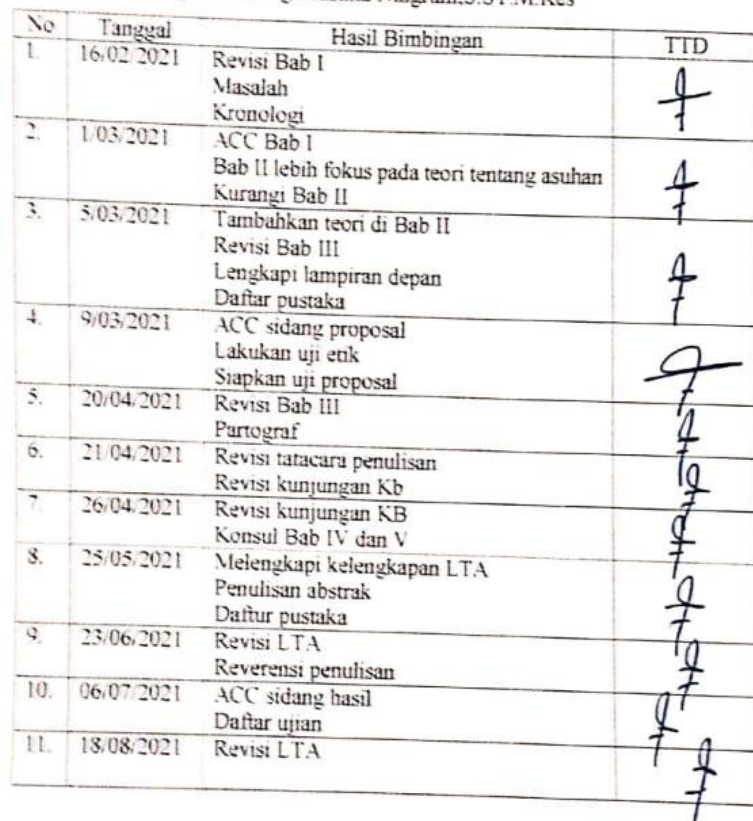 No Tanggal Hasil Bimbingan TTD
1. 16/02/2021 Revisi Bab I
Masalah
Kronologi
2. 1/03/2021 ACC Bab I
Bab II lebih fokus pada teori tentang asuhan
Kurangi Bab II
3. 5/03/2021 Tambahkan teori di Bab II
Revisi Bab III
Lengkapi lampiran depan
Daftar pustaka
4. 9/03/2021 ACC sidang proposal
Lakukan uji etik
Siapkan uji proposal
5. 20/04/2021 Revisi Bab III
Partograf
6. 21/04/2021 Revisi tatacara penulisan
Revisi kunjungan Kb
7. 26/04/2021 Revisi kunjungan KB
Konsul Bab IV dan V
8. 25/05/2021 Melengkapi kelengkapan LTA
Penulisan abstrak
Daftur pustaka
9. 23/06/2021 Revisi LTA
Reverensi penulisan
10. 06/07/2021 ACC sidang hasil
Daftar ujian
11. 18/08/2021 Revisi LTA